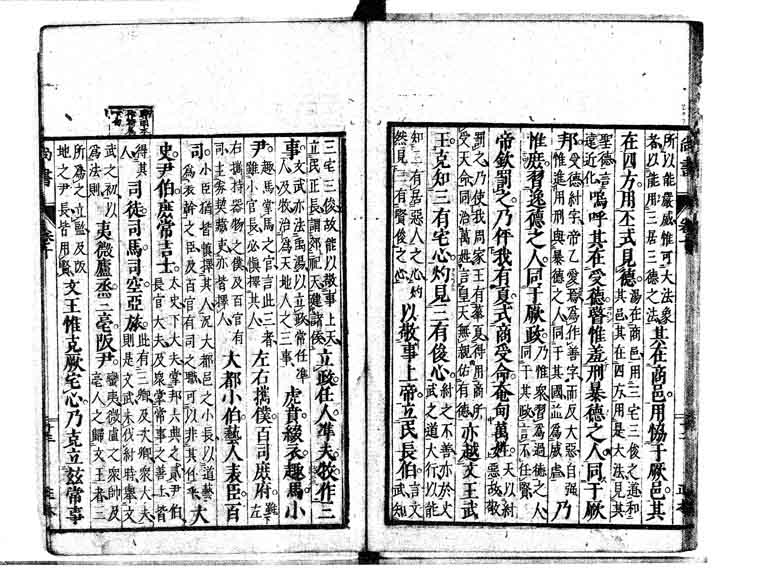 所以能嚴威惟可大法象者以能用三居三德之法其在商邑用恊于厥邑其
在四方用丕式見德湯在商邑用三宅三俊之道和其邑其在四方用是大法見其
聖德言遠近化嗚呼其在受德暋惟羞刑暴德之人同于厥
邦受德紂字帝乙愛焉爲作善字而反大惡自强惟進用刑與暴德之人同于其國並爲威虐乃
惟庶習逸德之人同于厥政乃惟衆習爲過德之人同于其政言不任賢
帝欽罰之乃伻我有夏式商受命奄甸萬姓天以紂惡故敬
罰之乃使我周家王有華夏得用商所受天命同治萬姓言皇天無親佑有德亦越文王武
王克知三有宅心灼見三有俊心紂之不善亦於文武之道大行以能
知三有居惡人之心灼然見三有賢俊之心以敬事上帝立民長伯言文武知
三宅三俊故能以敬事上天立民正長謂郊祀天建諸侯立政任人準夫牧作三
事文武亦法禹湯以立政常任準人及牧治爲天地人之三事虎賁綴衣趣馬小
尹趣馬掌馬之官言此三者雖小官長必慎擇其人左右攜僕百司庶府雖左
右攜持器物之僕及百官有司主券契藏吏亦皆擇人大都小伯藝人表臣百
司小臣猶皆慎擇其人況大都邑之小長以道藝爲表幹之臣及百官有司之職可以非其任乎大
史尹伯庶常吉士太史下大夫掌邦六典之貳尹伯長官大夫及衆掌常事之善士皆
得其人司徒司馬司空亞旅此有三卿及次卿衆大夫則是文武未伐紂時舉文
武之初以爲法則夷微盧烝三亳阪尹蠻夷微盧之衆帥及亳人之歸文王者三
所爲之立監及阪地之尹長皆用賢文王惟克厥宅心乃克立茲常事
尚書 卷十